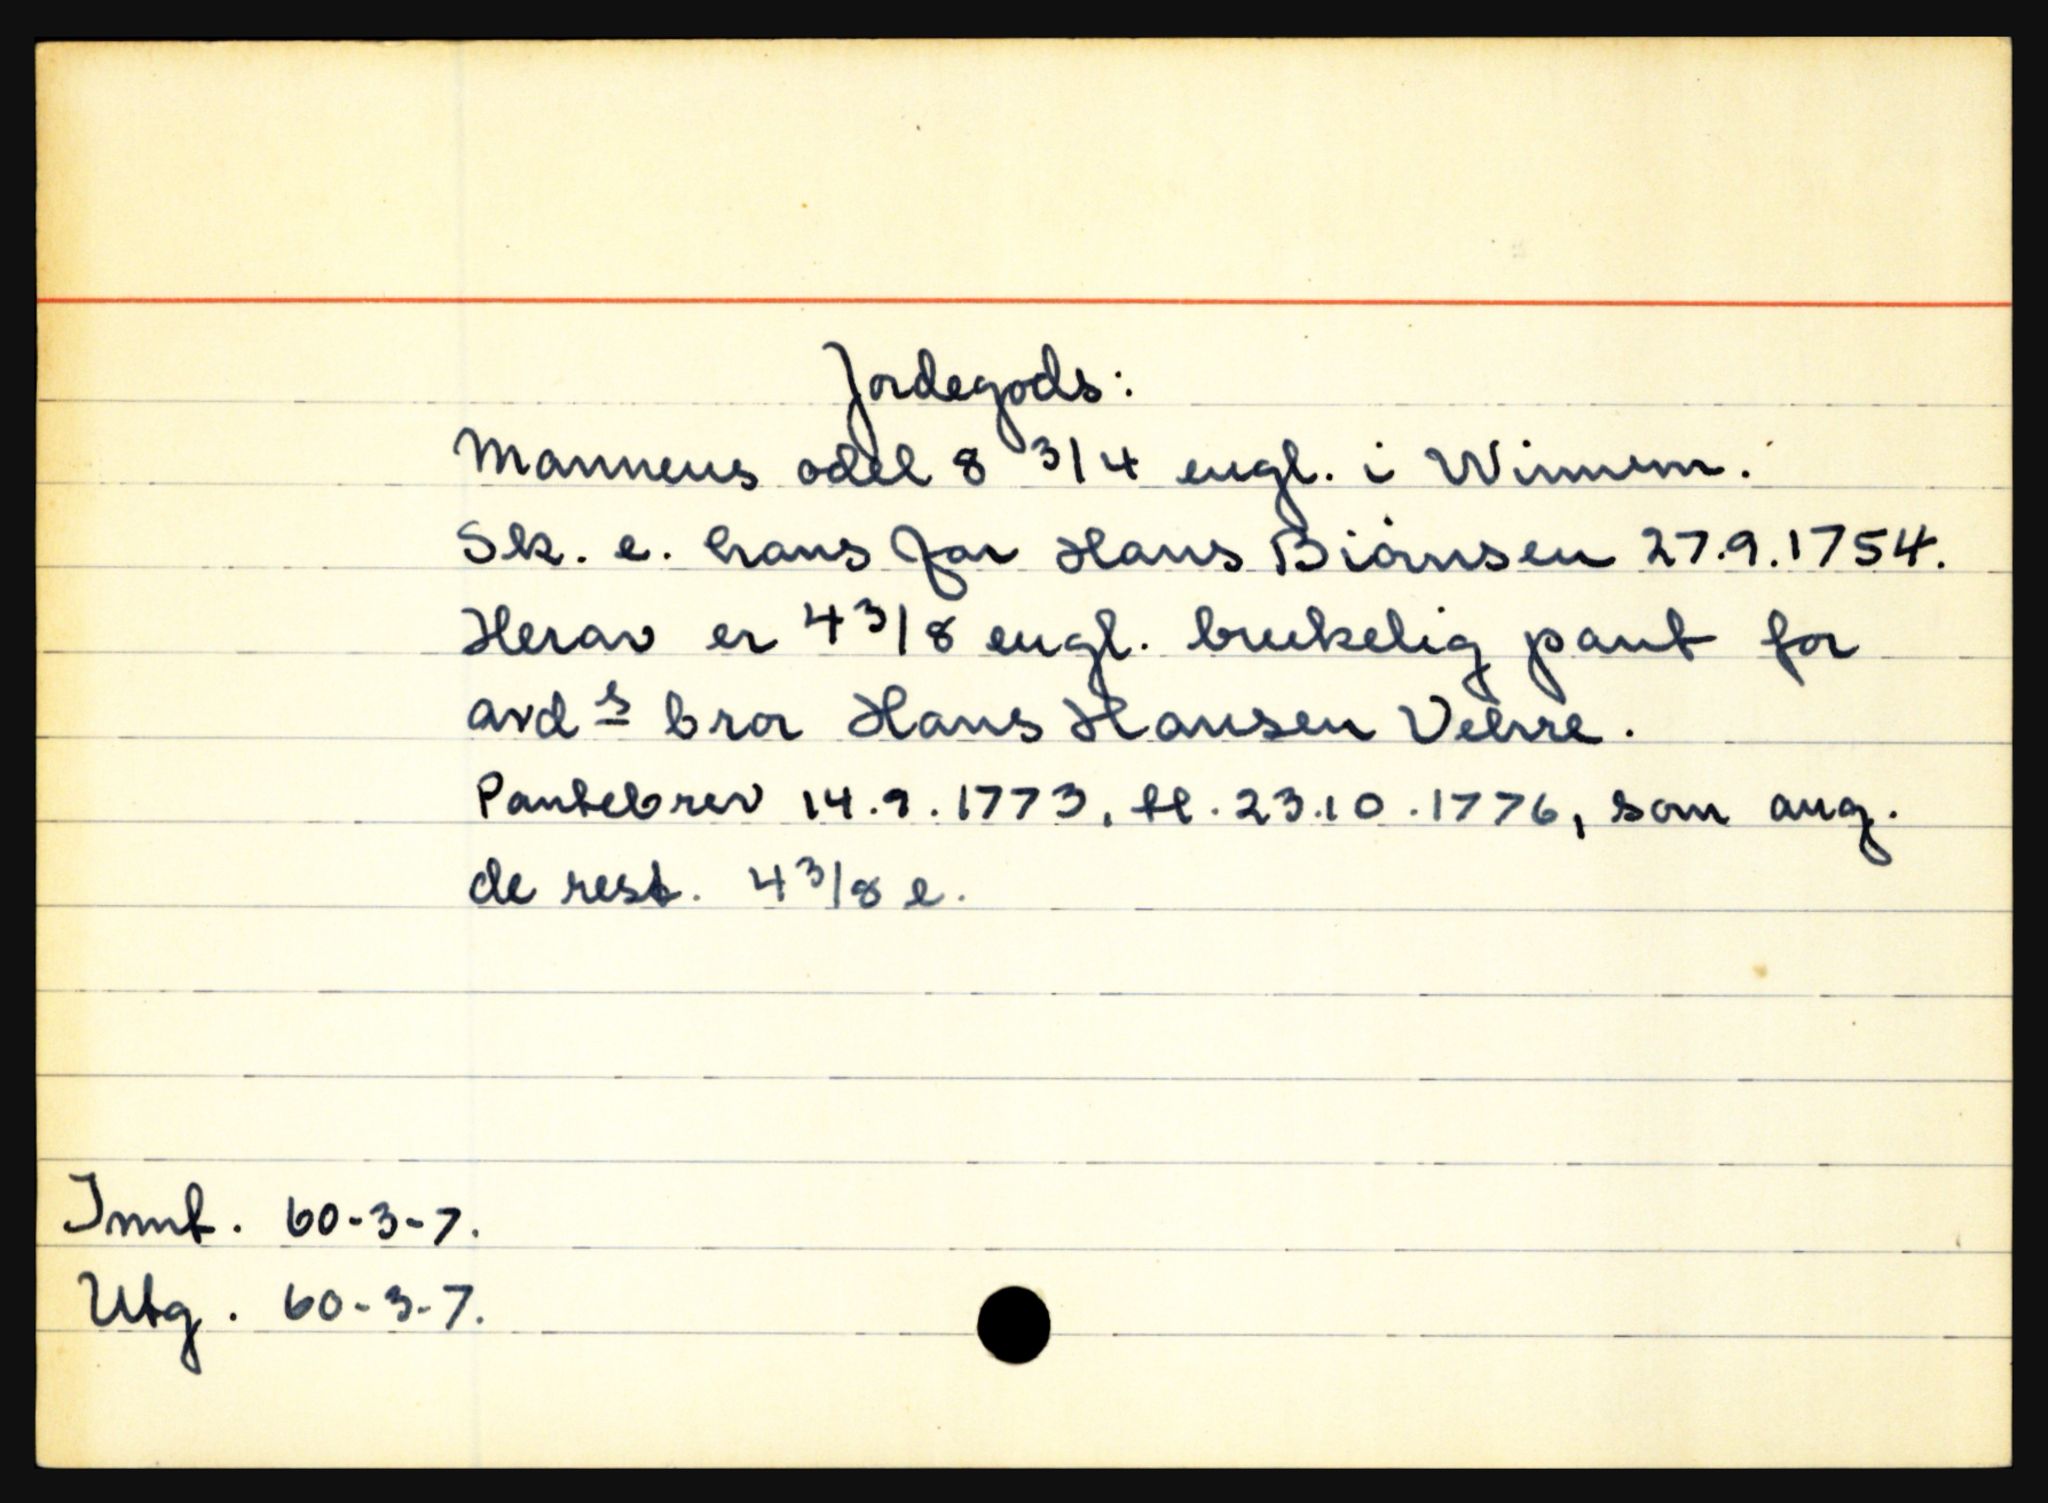 Jordegods:
Mannens odel 8 3/4 engl. i Winnem.
Sk. e. hans far Hans Biörnsen 27.9.1754.
Herav er 4 3/8 engl. brukelig pant for
avd s bror Hans Hansen Velure.
Pantebrev 14.9.1773, tl. 23.10.1776, som ang.
de rest. 4 3/8 e.
Innt. 60-3-7.
Utg. 60-3-7.